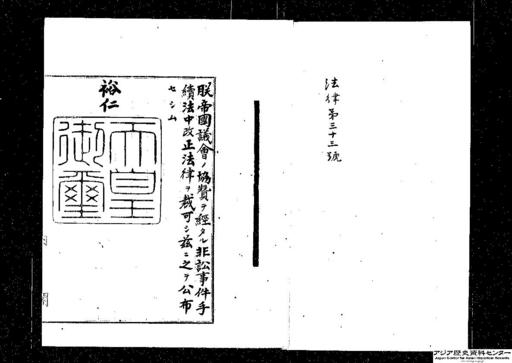 法律第三十三號
朕帝國議會ノ協贊ヲ經タル非訟事件手
續法中改正法律ヲ裁可シ茲ニ之ヲ公布
セシム
裕仁
天皇
御璽
アジア歴史資料センター
Japan Center for Asian Historical Records